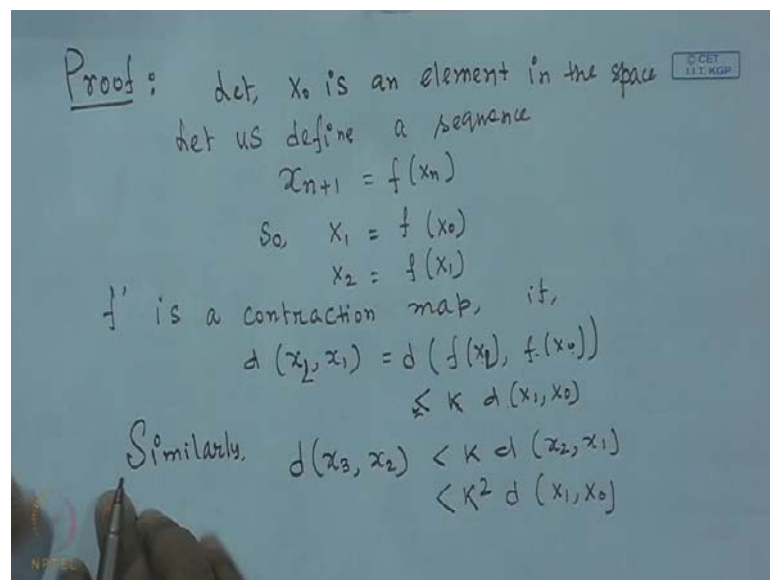 Proof : Let, x₀ is an element in the space
© CET
I.I.T. KGP
Let us define a sequence
xₙ₊₁ = f(xₙ)
So, x₁ = f(x₀)
x₂ = f(x₁)
f' is a contraction map, if,
d(x₂, x₁) = d(f(x₁), f(x₀))
≤ K d(x₁, x₀)
Similarly, d(x₃, x₂) < K d(x₂, x₁)
< K² d(x₁, x₀)
NPTEL